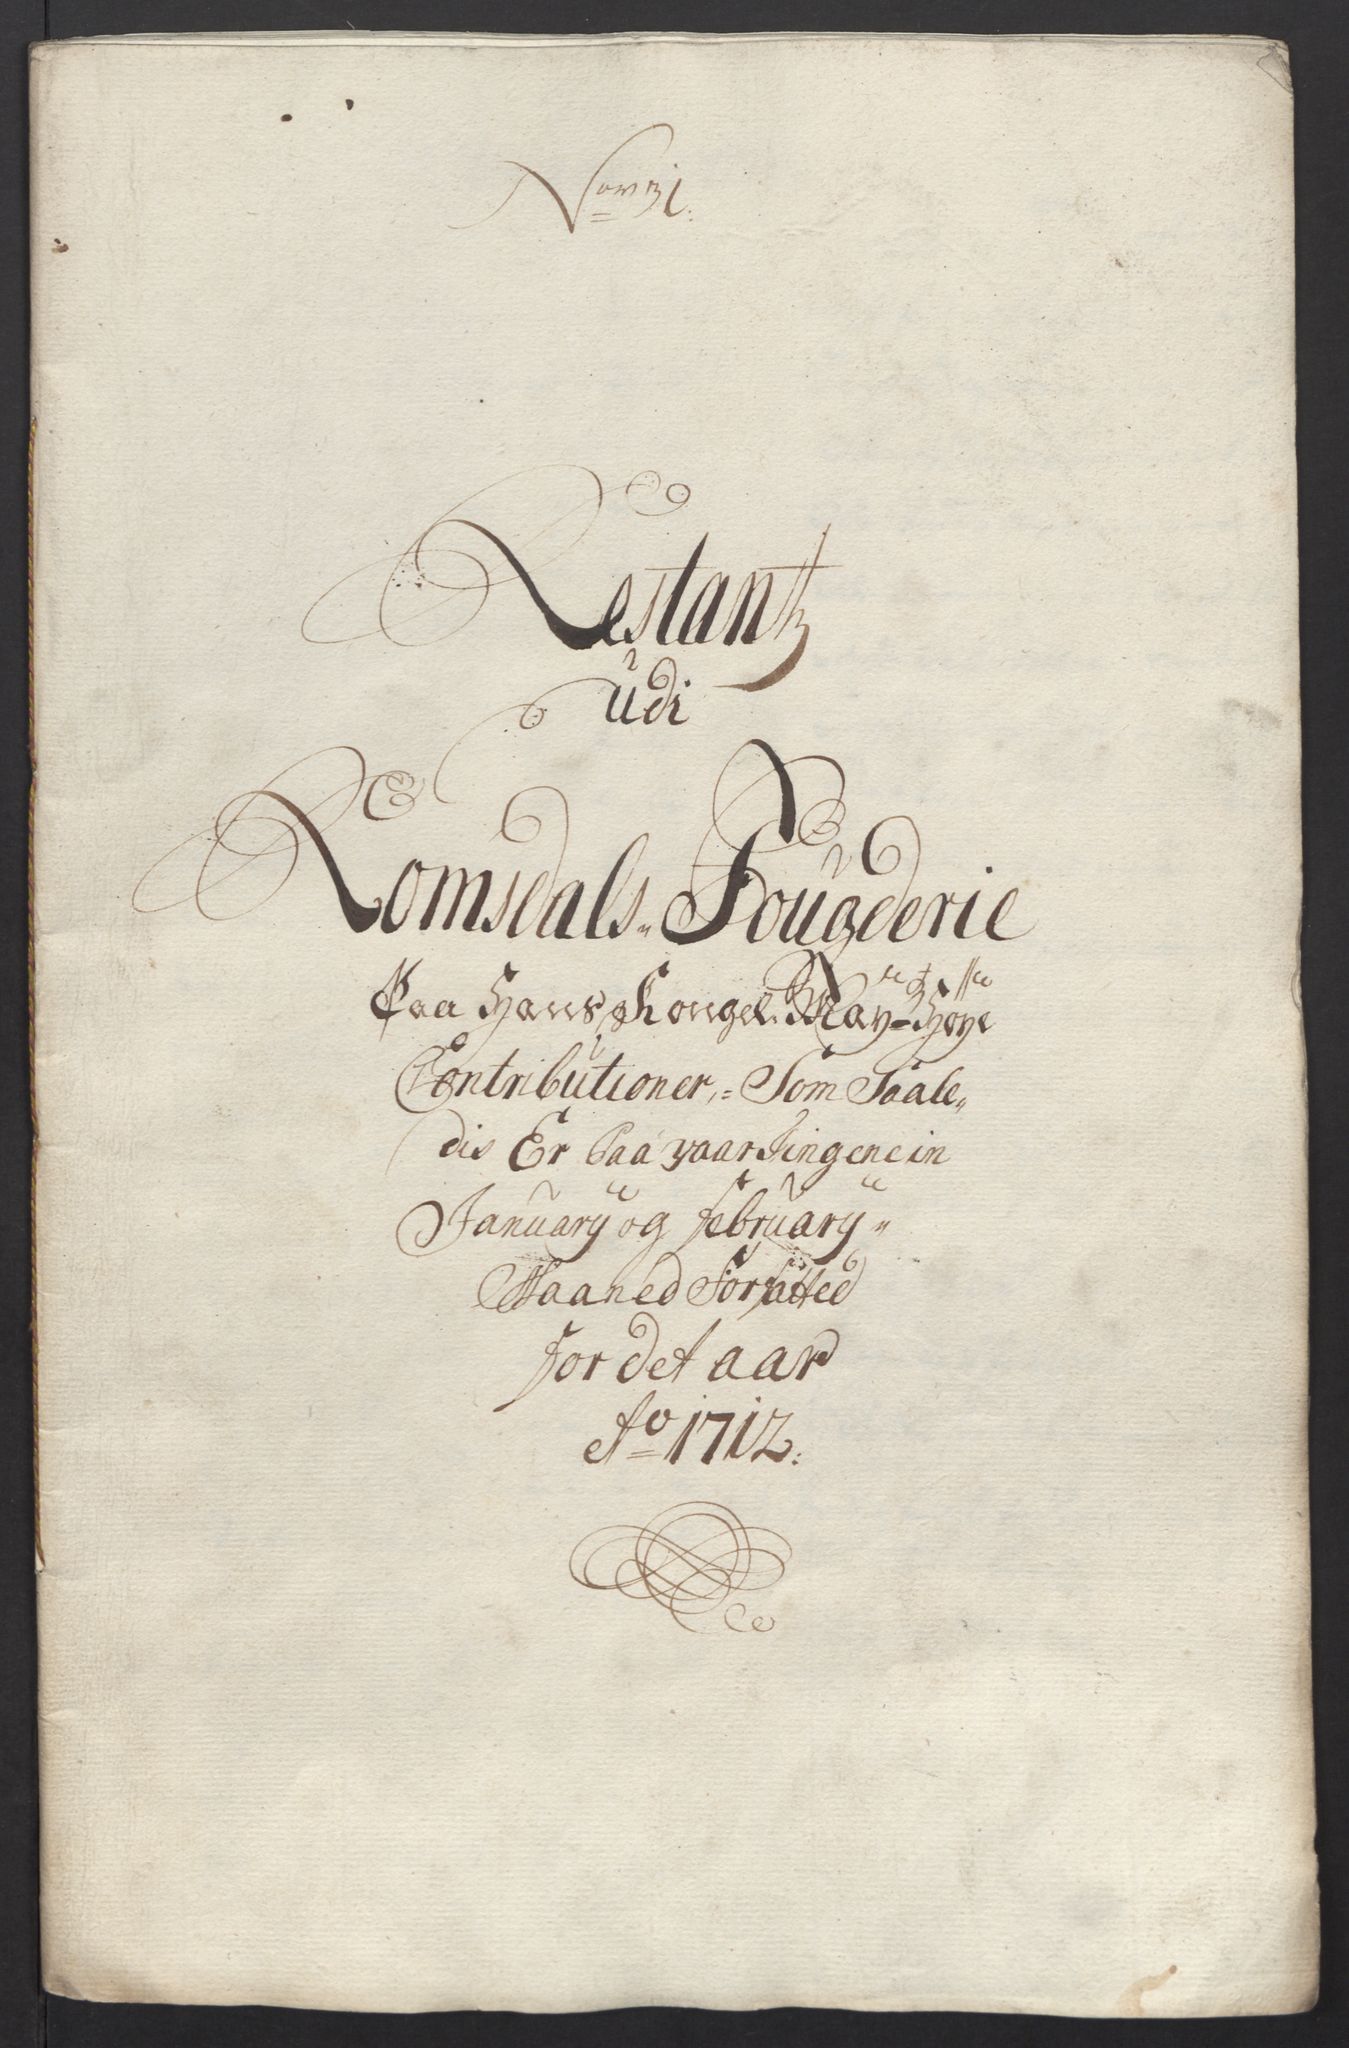 No 31.
Restantz
udi
Romsdals Fougderie
Paa Hans Kongel: May:tz Høye
Contributioner, Som Saale-
dis Er Paa vaar Tingene in
January og February
Maaned Forfatted
for det aar
Ao 1712.